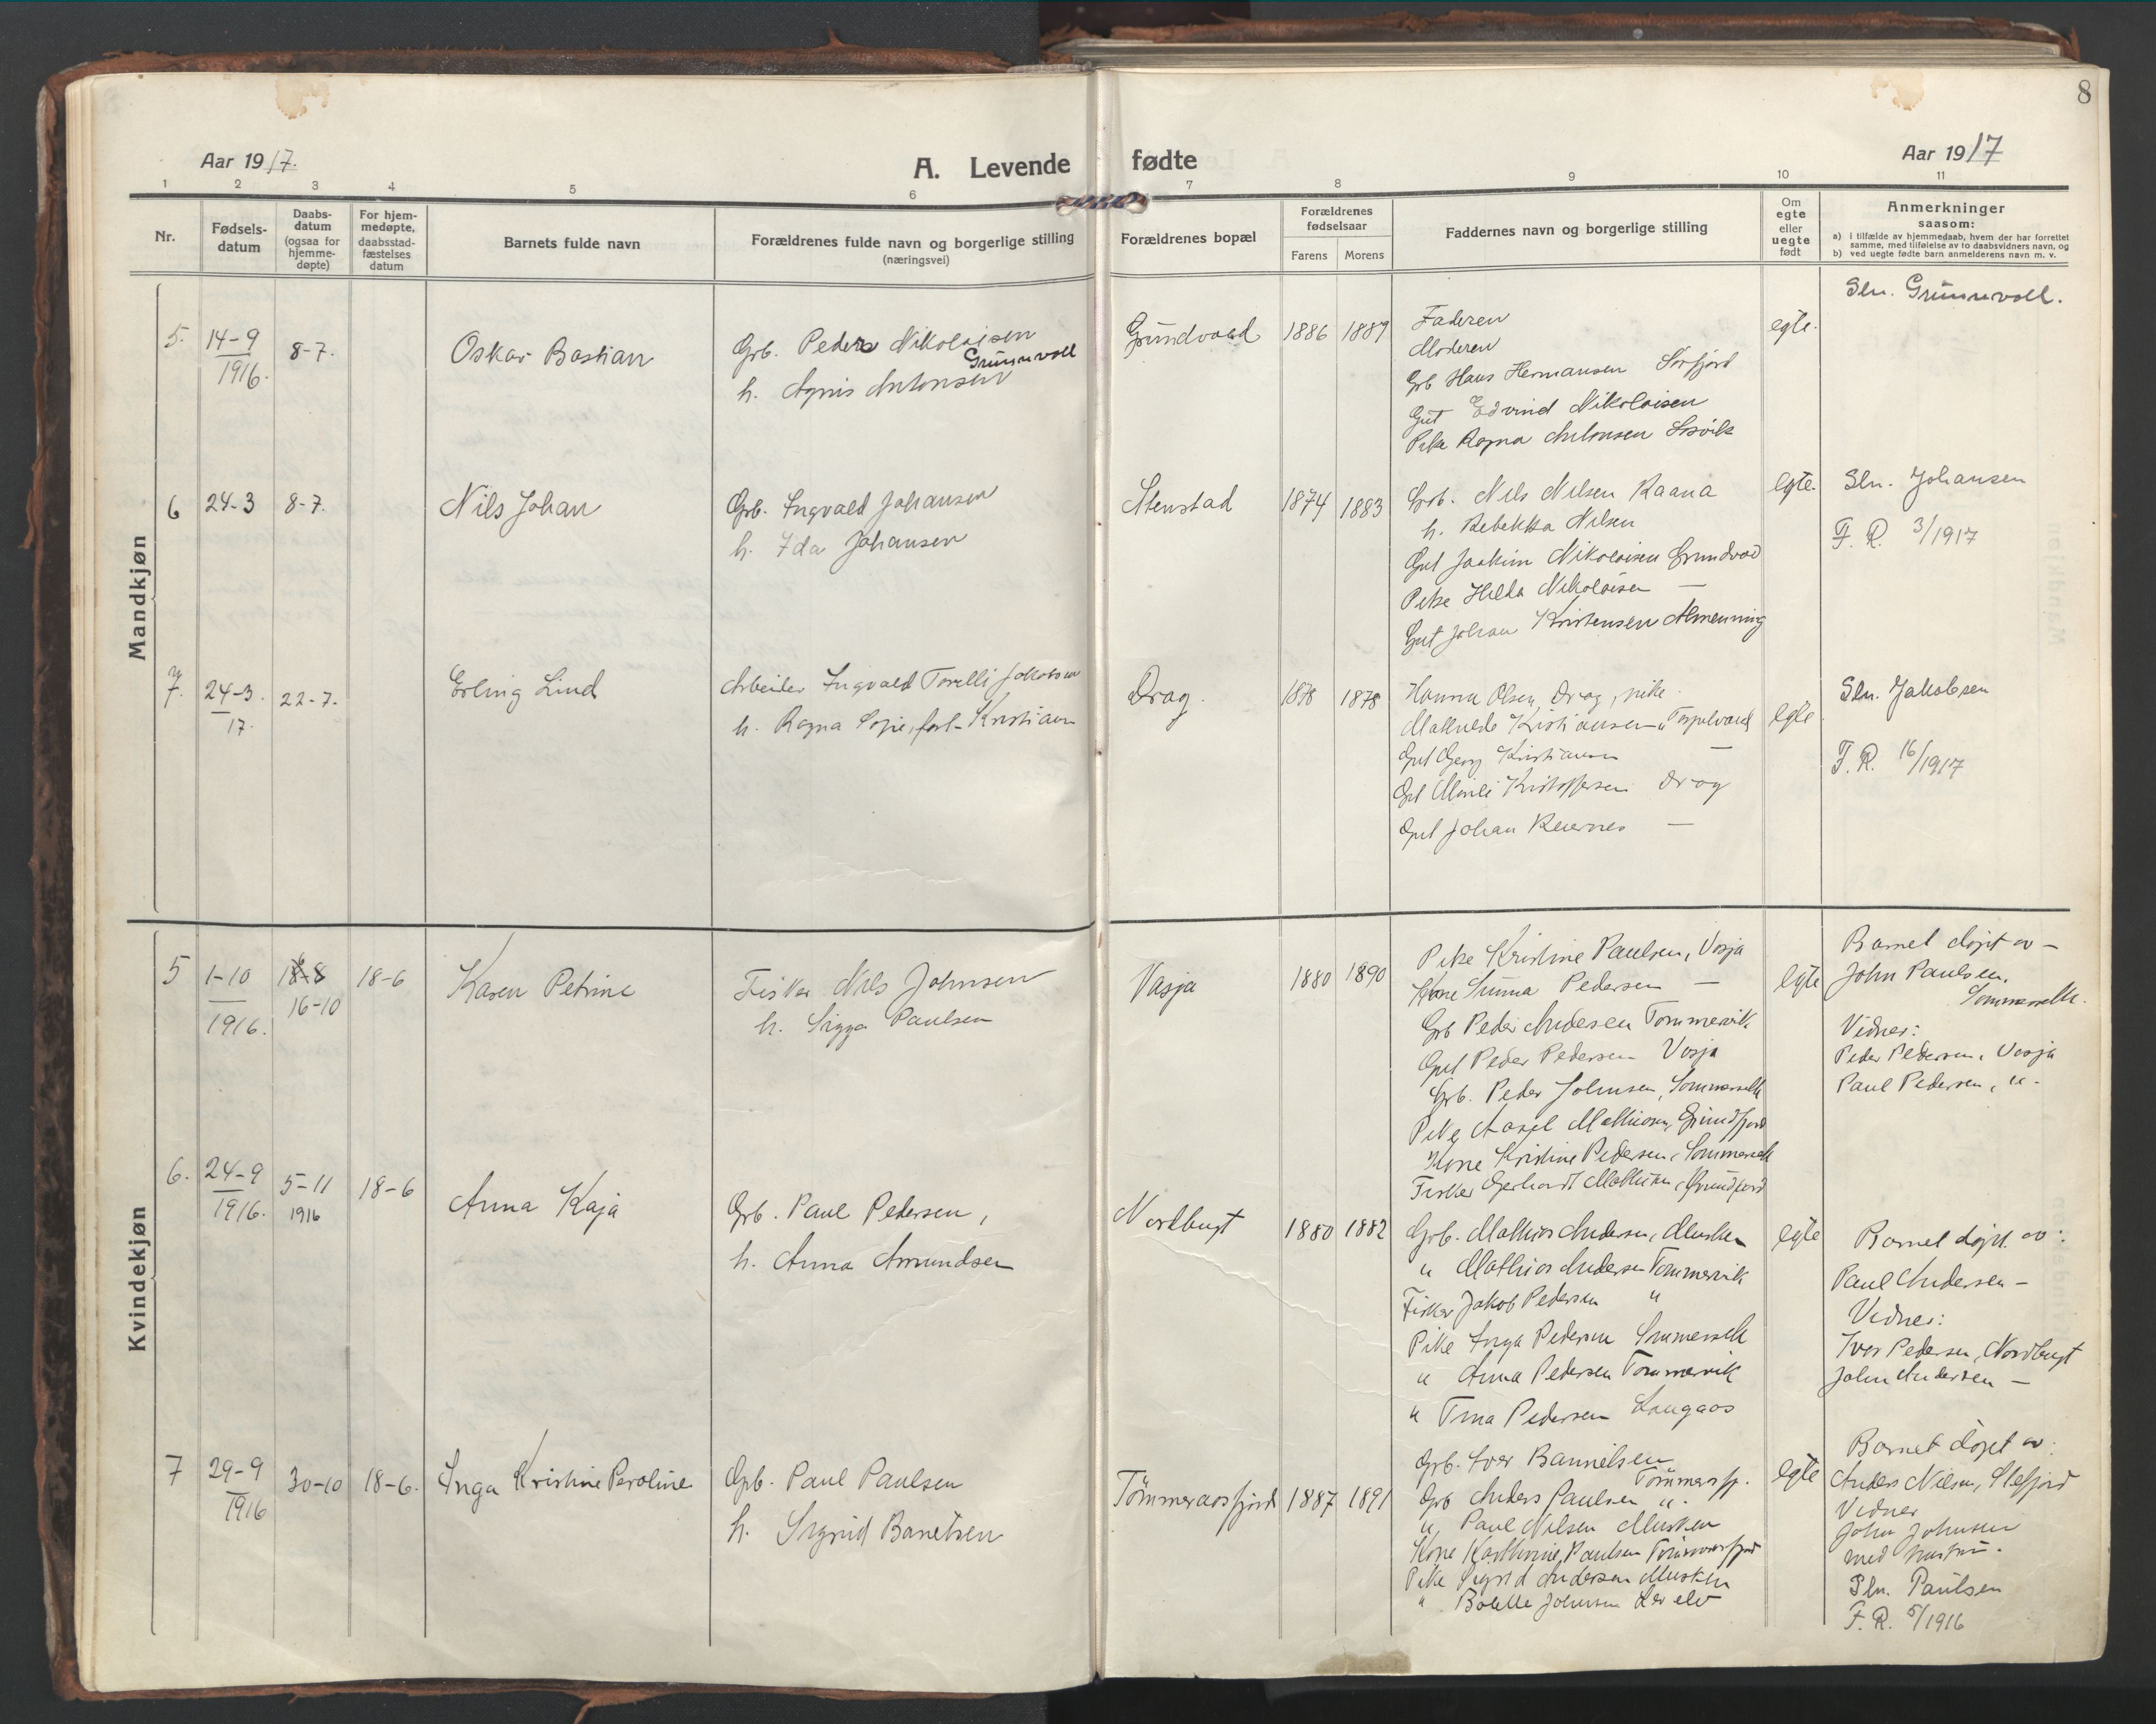 8
Aar 1917.
A. Levende fødte
Aar 1917
1 2 3 4 5 6 7 8 9 10 11
Nr.
Fødsels-
datum
Daabs-
datum
(ogsaa for
hjemme-
døpte)
For hjem-
medøpte,
daabsstad-
fæstelses
datum
Barnets fulde navn
Forældrenes fulde navn og borgerlige stilling
(næringsvei)
Forældrenes bopæl
Forældrenes
fødselsaar
Farens Morens
Faddernes navn og borgerlige stilling
Om
egte
eller
uegte
født
Anmerkninger
saasom:
a) i tilfælde av hjemmedaab, hvem der har forrettet
samme, med tilføielse av to daabsvidners navn, og
b) ved uegte fødte barn anmelderens navn m. v.
Mandkjøn
5.
14-9
1916.
8-7.
Oskar Bastian
Grb. Peder Nikolaisen
Grünnvoll
h. Agnis Antonsen
Grundvaad
1886 1889
Faderen
Moderen
Grb Hans Hermansen Sørfjord
Gut Edvind Nikolaisen
Pike Ragna Antonsen
egte.
Sln. Grünnvoll.
6
24-3
8-7.
Nils Johan
Grb. Ingvald Johansen
h. Ida Johansen
Stenstad
1874 1883
Grb. Nils Nilsen Raana
h. Rebekka Nilsen
Gut Joakim Nikolaisen Grundvad
Pike Hilda Nikolaisen —
Gut Johan Kristensen Almenning
egte.
Sln. Johansen
F. R. 3/1917
7.
24-3.
17.
22-7.
Erling Lind
Arbeider Ingvald Torelli Jakobsen
h. Ragna Sofie, født Kristiansen
Drag.
1878 1878
Hanna Olsen, Drag, pike.
Mathilde Kristiansen
Gut Georg Kristiansen —
Gut Kristoffersen Drag
Gut Johan —
egte.
Sln. Jakobsen
F. R. 16/1917
Kvindekjøn
5
1-10
1916.
16-10
18-6
Karen Petrine
Fisker Nils Johnsen
h. Sigga Paulsen
Vasja
1880 1890
Pike Kristine Paulsen, Vasja
Kone Pedersen —
Grb Peder Andersen Tømmervik.
Gut Peder Pedersen Vasja
Grb. Peder Johnsen, Sommersells
Pike Aasel Mathisen, Grundfjord
Kone Kristine Pedersen, Sommersells
Fisker Gerhardt Mathisen, Grundfjord
egte
Barnet døpt av —
John Paulsen,
Sommersells.
Vidner:
Peder Pedersen, Vasja
Paul Pedersen, u.
6.
24-9
1916.
5-11
1916
18-6
Anna Kaja
Grb. Paul Pedersen,
h. Anna Amundsen
Nordbugt
1880 1882
Grb. Mathias Andersen, Musken
" Mathias Andersen Tømmervik
Fisker Jakob Pedersen "
Pike Inga Pedersen Sommersells
" Anna Pedersen Tømmervik
" Tina Pedersen
egte
Barnet døpt av:
Paul Andersen —
Vidner:
Iver Pedersen, Nordbugt
John Andersen —
7
29-9
1916
30-10
18-6.
Inga Kristine Peroline
Grb. Paul Paulsen
h. Sigrid Banetsen
Tømmeraasfjord
1887 1891
Grb. Iver
Tømmeraasfj.
Grb Anders Paulsen ".
" Paul Nilsen Musken
Kone Paulsen Tømmeraasfjord
Pike Sigrid Andersen Musken
" Johnsen
egte
Barnet døpt av:
Anders Nilsen,
Vidner
John Johnsen
med hustru.
Sln. Paulsen
F. R. 5/1916